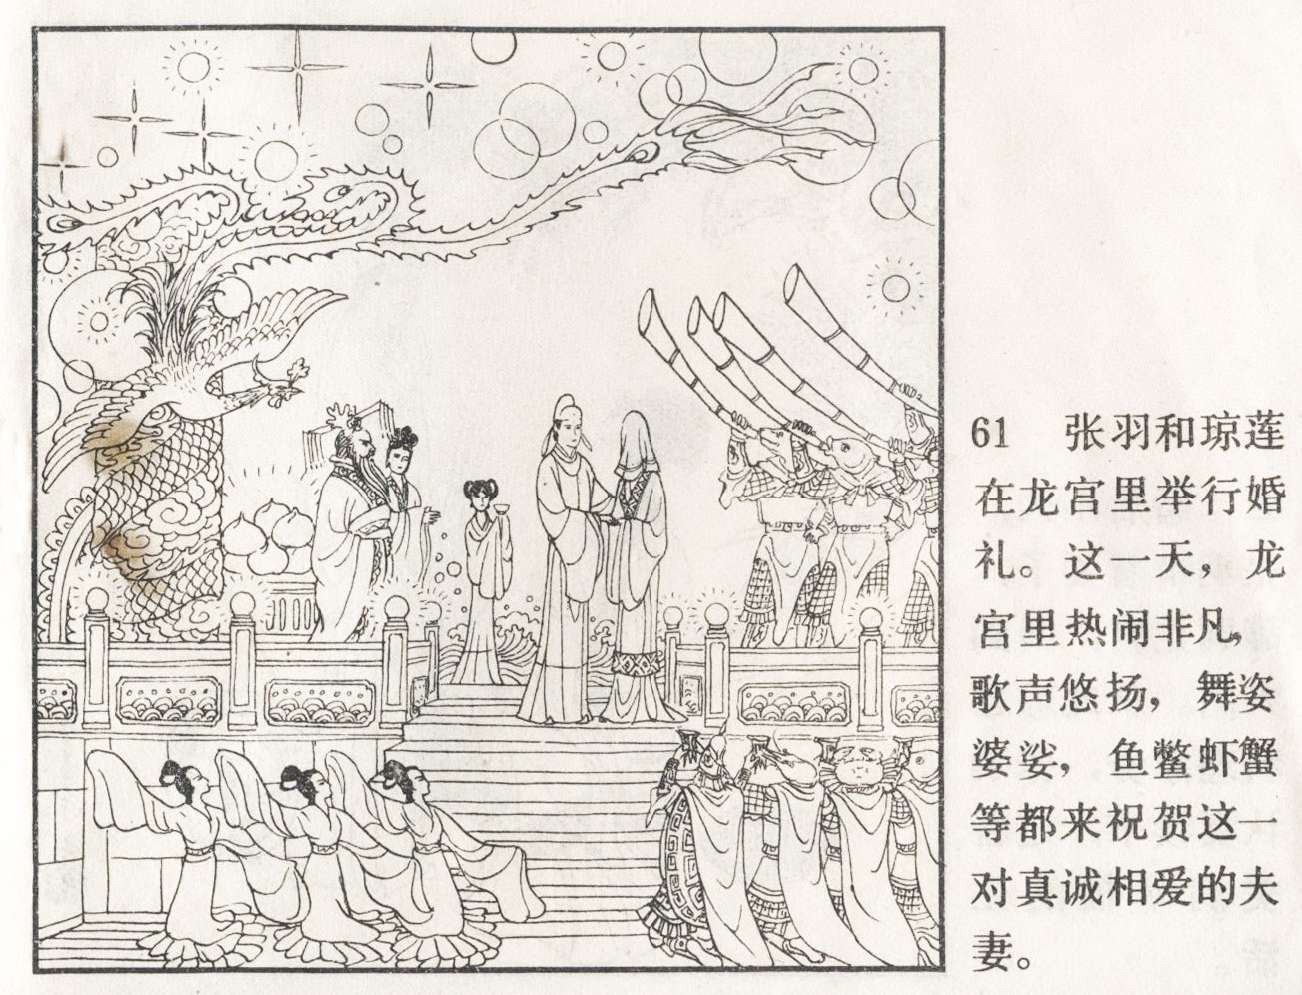 61 张羽和琼莲
在龙宫里举行婚
礼。这一天，龙
宫里热闹非凡，
歌声悠扬，舞姿
婆娑，鱼鳖虾蟹
等都来祝贺这一
对真诚相爱的夫
妻。